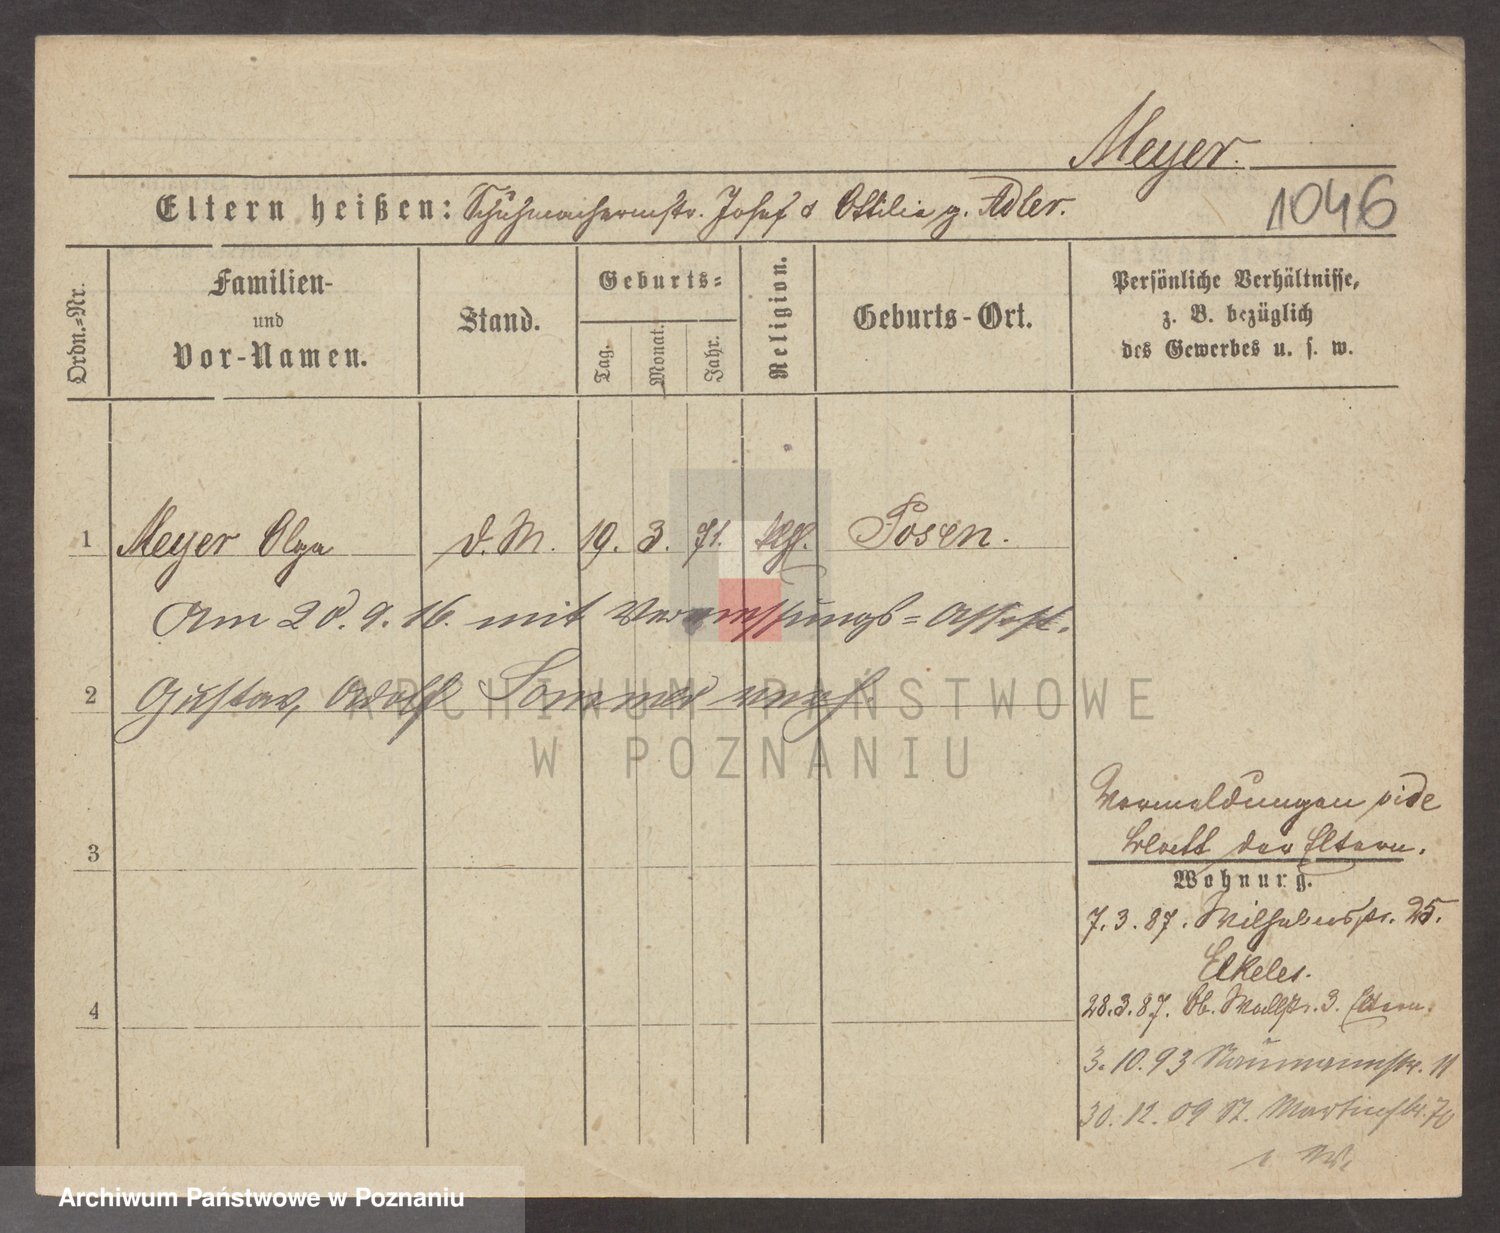 Meyer.
Eltern heißen: Schuhmachermstr. Josef & Ottilie g. Adler.
1046
Ordn.=Nr.
Familien-
und
Vor-Namen.
Stand.
Geburts=
Tag.
Monat.
Jahr.
Religion.
Geburts-Ort.
Persönliche Verhältnisse,
z. B. bezüglich
des Gewerbes u. s. w.
1 Meyer Olga d. M. 19. 3. 71. Posen.
Am 20. 9. 16. mit Vermessungs=Assist.
2 Gustav, Adolf Sommer verh.
ARCHIWUM PAŃSTWOWE
W POZNANIU
3
4
Vormeldungen vide
Blatt der Eltern.
Wohnung.
7. 3. 87. Wilhelmstr. 25.
Elkeles.
28. 3. 87. Ob. Wallstr. 3. Eltern.
3. 10. 93 Naumannstr. 11
30. 12. 09 St. Martinstr. 70
Archiwum Państwowe w Poznaniu